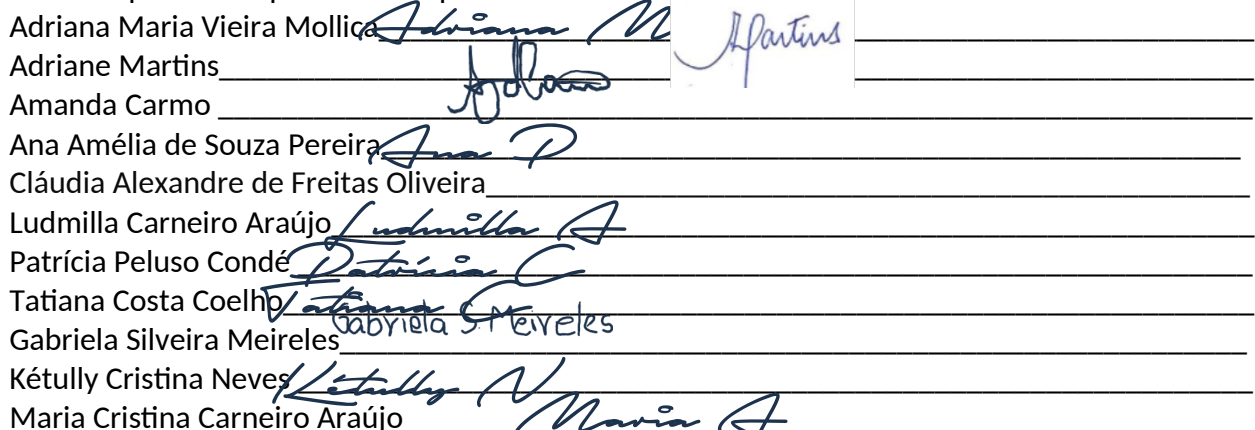 Adriana Maria Vieira Mollica Adriana M
Adriane Martins AMartins
Amanda Carmo
Ana Amélia de Souza Pereira Ana P
Cláudia Alexandre de Freitas Oliveira
Ludmilla Carneiro Araújo Ludmilla A
Patrícia Peluso Condé Patrícia C
Tatiana Costa Coelho Tatiana C
Gabriela Silveira Meireles Gabriela S. Meireles
Kétully Cristina Neves Kétully N
Maria Cristina Carneiro Araújo Maria A